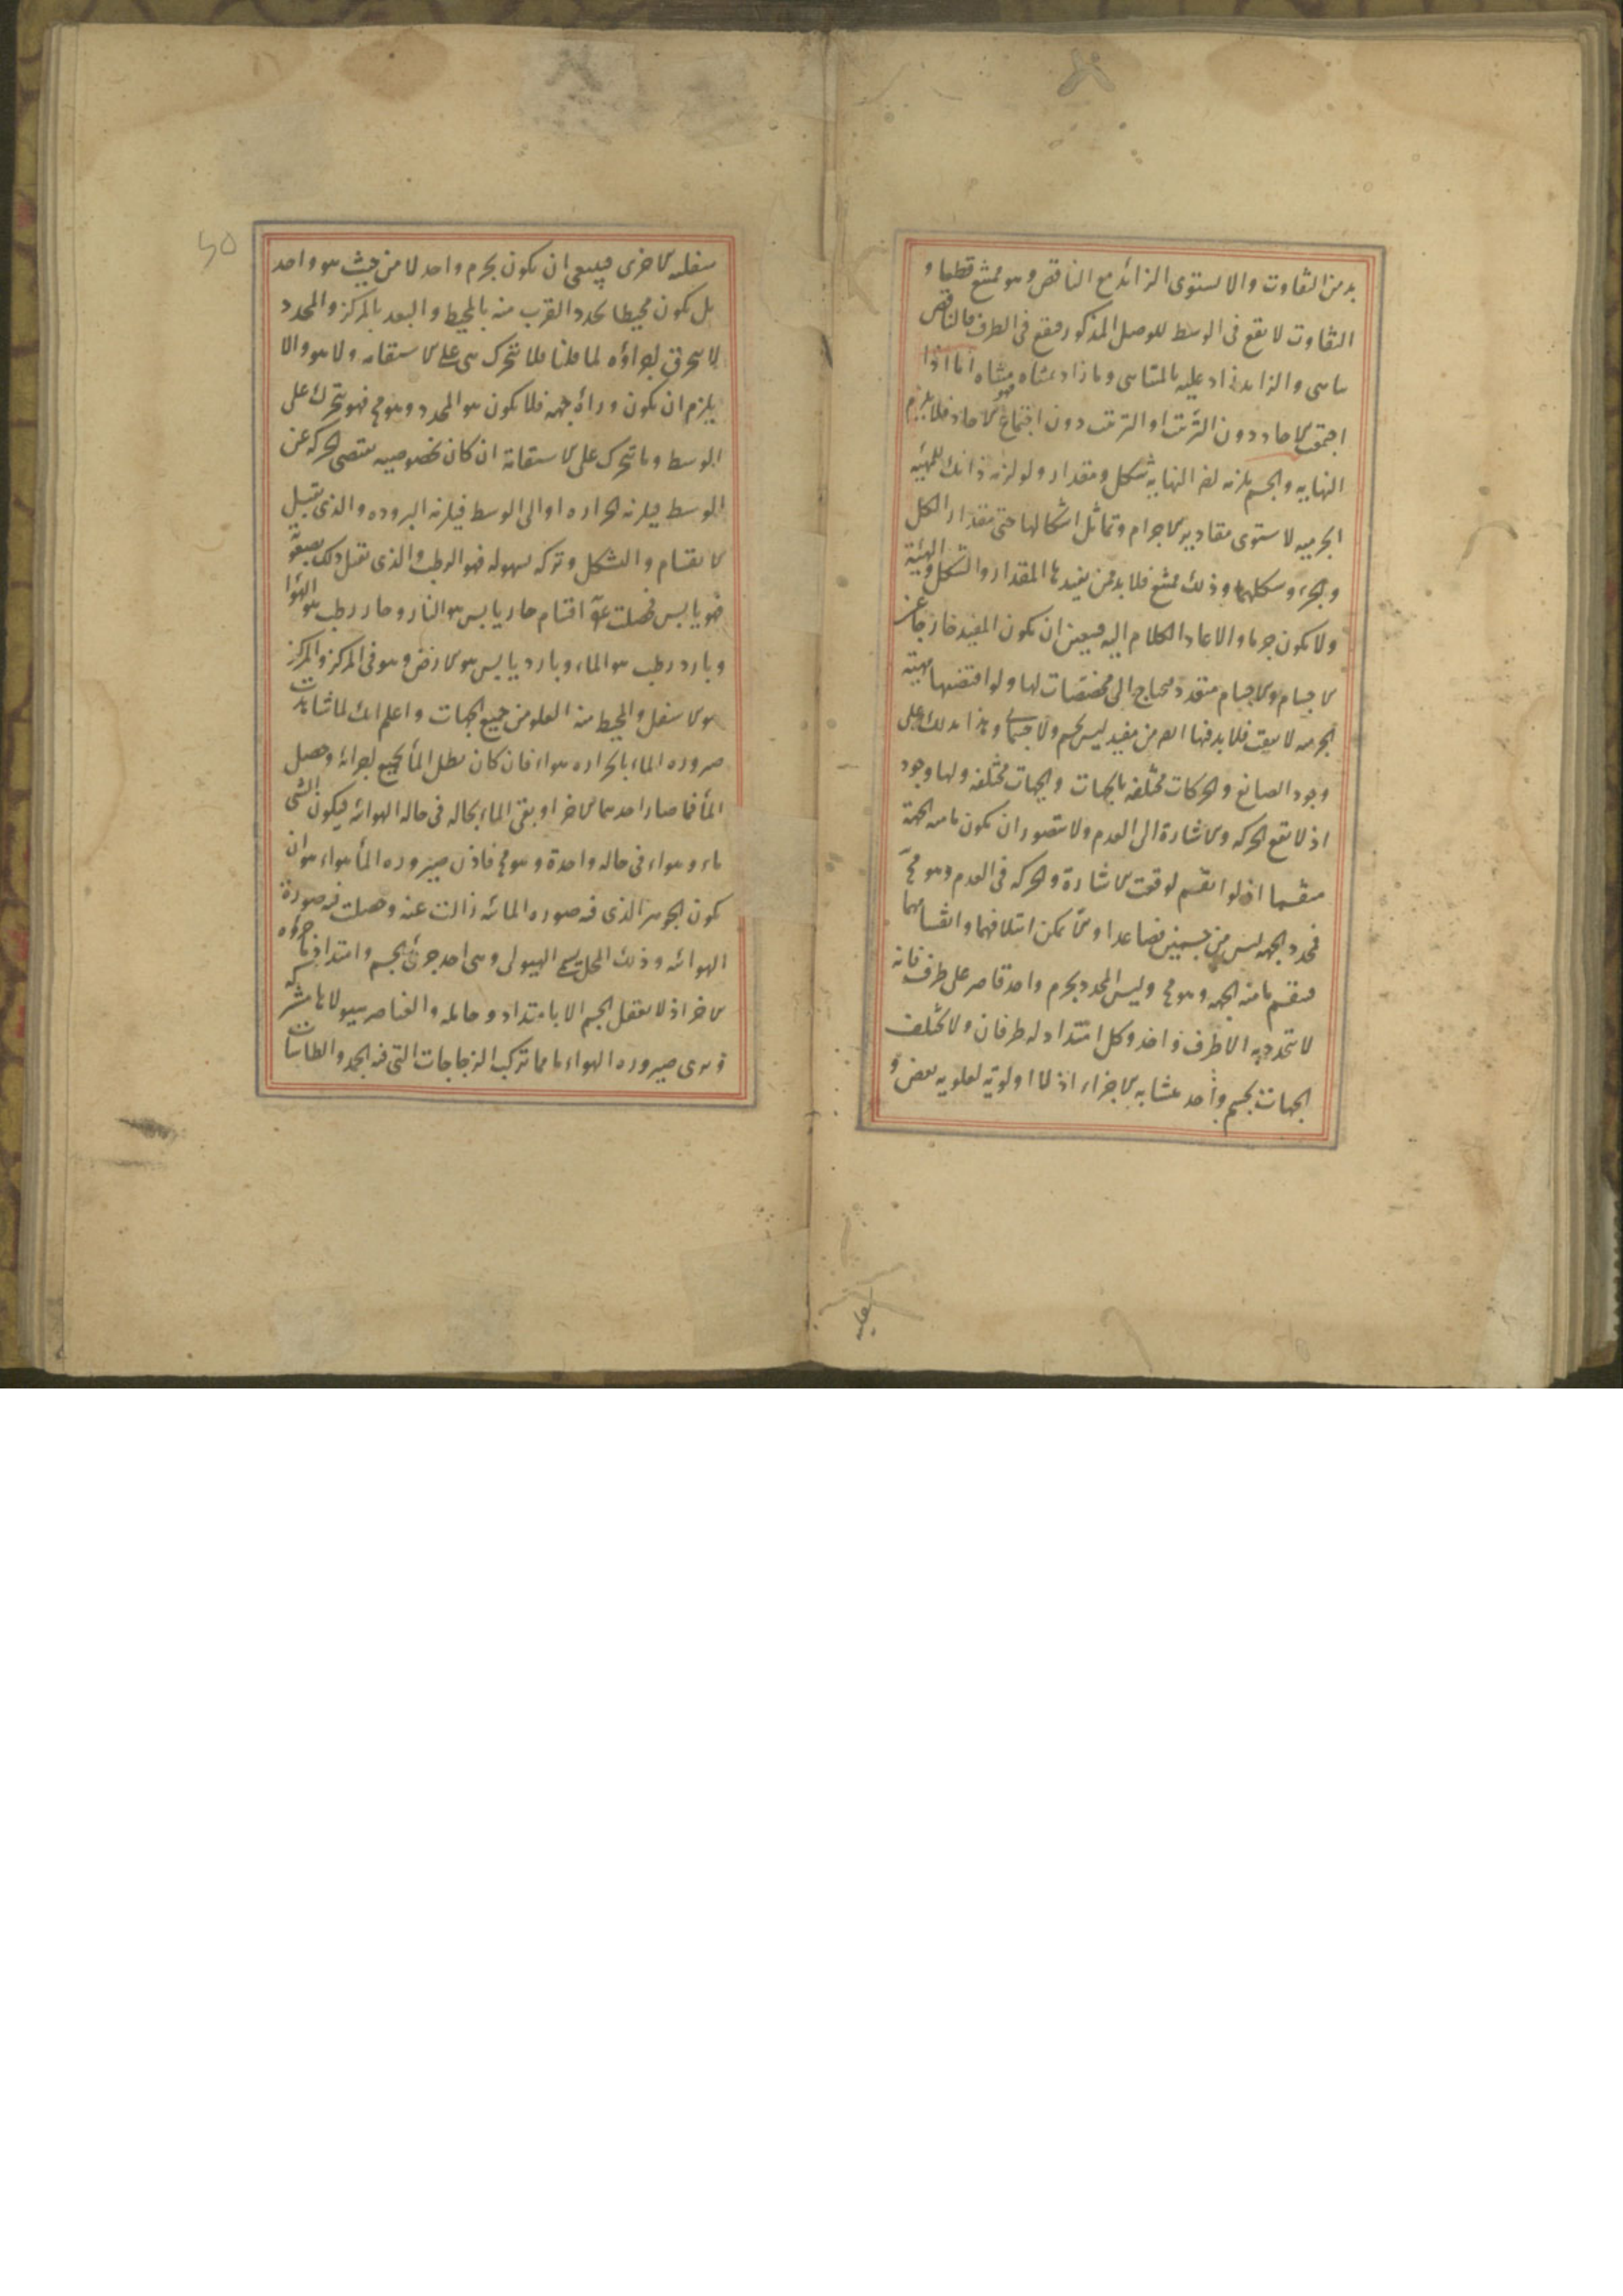 بد من التفاوت والا يستوى الزائد مع الناقص وهو ممتنع قطعا و
التفاوت لا يقع فى الوسط للوصل المذكور فيقع فى الطرف فالناقص
تناهى والزايد زاد عليه بالمتناهى وما زاد بمتناه فهو متناه اما اذا
اجتمعت الآحاد دون الترتيب او الترتيب دون اجتماع الآحاد فلا يلزم
النهايه والجسم يلزمه لضر النهايه شكل ومقدار ولو لزمه ذانك للهيئه
الجرميه لاستوى مقادير الاجرام وتماثل اشكالها حتى مقدار الكل
والجزء وشكلهما وذلك ممتنع فلا بد من يفيدها المقدار والشكل والهيئة
ولا يكون جرما والا عاد الكلام اليه فيتعين ان يكون المفيد خارجا عن
الاجسام والاجسام متعدد محتاج الى مخصصات لها ولو اقتضتها هيئة
الجرميه لا تفقت فلا بد فيها الضر من مفيد ليس بجسم ولا جسمانى وهذا يدلك على
وجود الصانع والحركات مختلفه بالجهات والجهات مختلفه ولها وجود
اذ لا تقع الحركه والاشارة الى العدم ولا يتصور ان يكون ما منه الجهة
منقسما اذ لو انقسم لوقعت الاشارة والحركه فى العدم وهو مح
فمحدد الجهه ليس من جسمين فصاعدا والا يمكن ائتلافهما وانقسامهما
فينقسم ما منه الجهه وهو مح وليس المحدد بجرم واحد قاصر على طرف فانه
لا يتحدد به الا طرف واحد وكل امتداد له طرفان ولا تختلف
الجهات بجسم واحد متشابه الاجزاء اذ لا اولوية لعلويه بعض و
سفليه الاخرى فينبغى ان يكون بجرم واحد لا من حيث هو واحد
بل يكون محيطا يحدد القرب منه بالمحيط والبعد بالمركز والمحدد
لا يتحرق اجزاؤه لما قلنا فلا تتحرك هى على الاستقامه ولا هو والا
يلزم ان يكون وراءه جهه فلا يكون هو المحدد وهو مح فهو يتحرك على
الوسط وما يتحرك على الاستقامة ان كان بخصوصيه تقتضى الحركه عن
الوسط فيلزمه الحراره او الى الوسط فيلزمه البروده والذى يقبل
الانقسام والشكل وتركه بسهوله فهو الرطب والذى يقبل ذلك بصعوبة
فهو يابس فحصلت اربعة اقسام حار يابس هو النار وحار رطب هو الهواء
وبارد رطب هو الماء وبارد يابس هو الارض وهو فى المركز والمركز
هو الاسفل والمحيط منه العلو من جميع الجهات واعلم انك لما شاهدت
صيروره الماء بالحراره هواء فان كان بطل الماء بجميع اجزائه وحصل
الماء فما صار احدهما الاخر او بقى الماء بحاله فى حاله الهوائه فيكون الشى
ماء وهواء فى حاله واحدة وهو مح فاذن صيروره الماء هواء هو ان
يكون الجوهر الذى فيه صوره المائه زالت عنه وحصلت فيه صورة
الهوائه وذلك المحل يسمى الهيولى وهى احد جزئى الجسم وامتدادها جزؤه
الاخر اذ لا يعقل الجسم الا بامتداد وحامله والعناصر هيولاها مشتركه
وترى صيروره الهواء ماء مما تركب الزجاجات التى فيه الجمد والطاسات